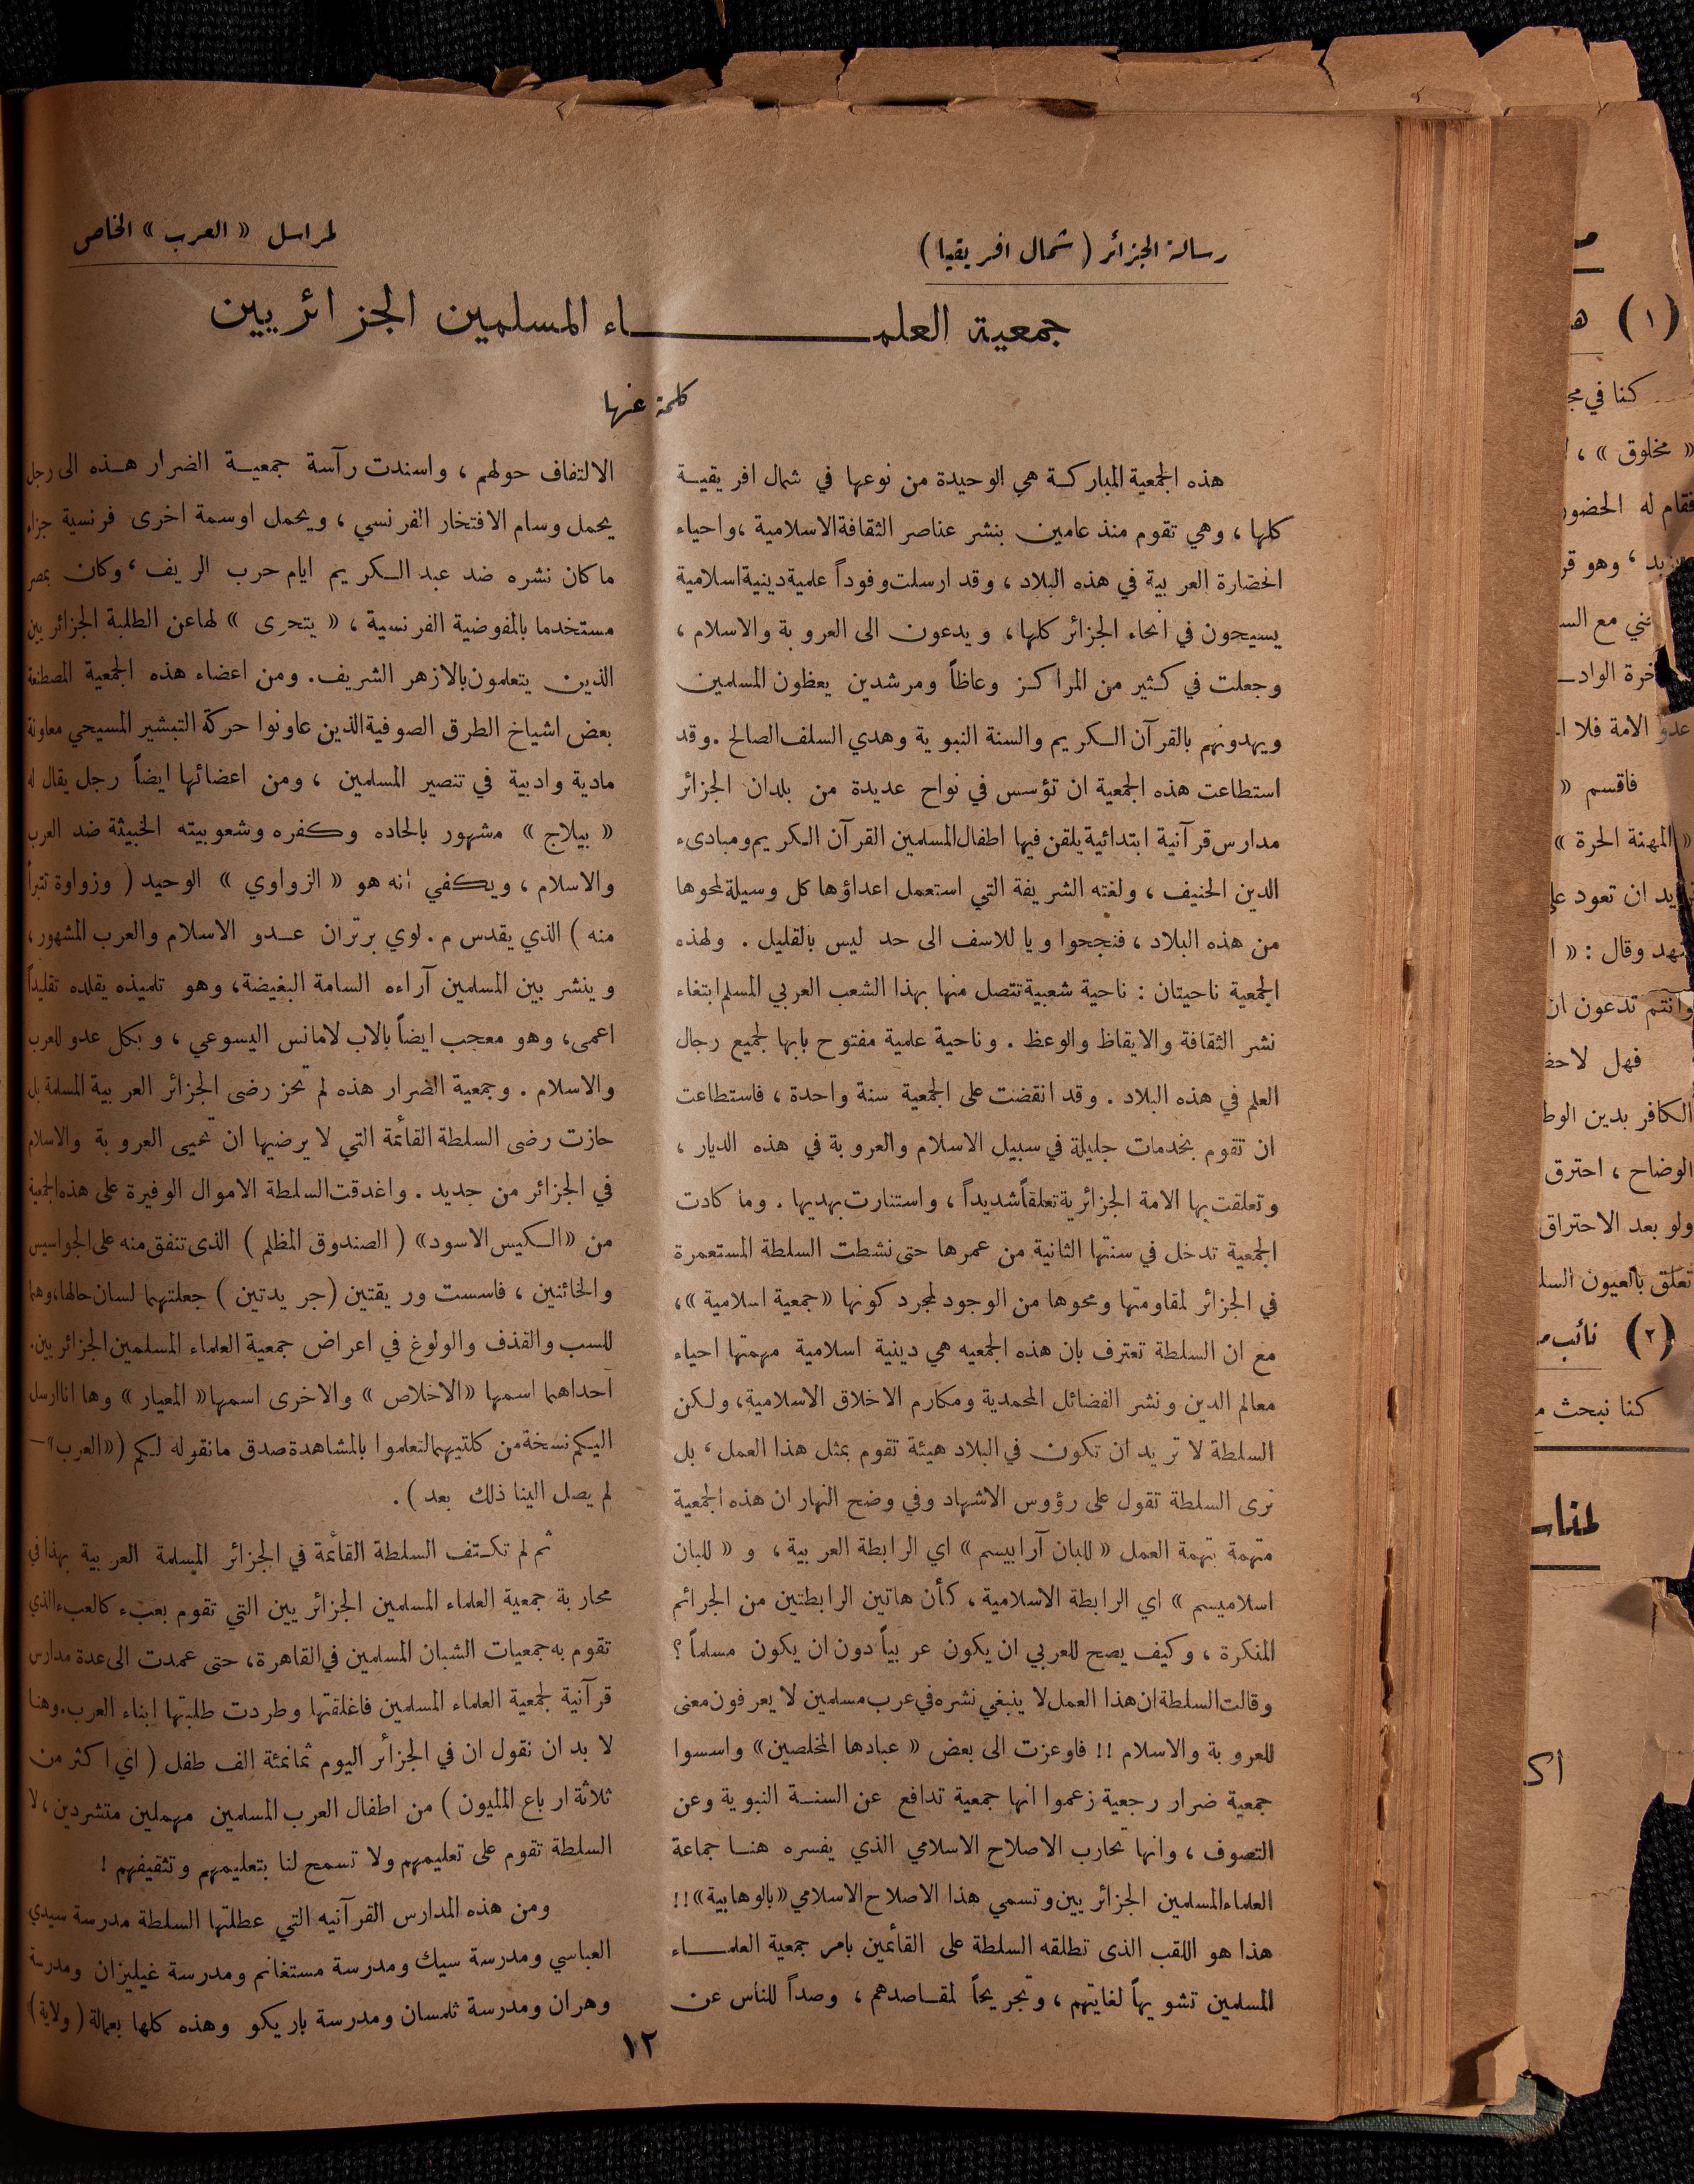 رسالة الجزائر ( شمال افريقيا )
لمراسل « العرب » الخاص
جمعية العلماء المسلمين الجزائريين
كلمة عنها
هذه الجمعية المباركة هي الوحيدة من نوعها في شمال افريقية
كلها ، وهي تقوم منذ عامين بنشر عناصر الثقافة الاسلامية ، واحياء
الحضارة العربية في هذه البلاد ، وقد ارسلت وفوداً علمية دينية اسلامية
يسيحون في انحاء الجزائر كلها ، ويدعون الى العروبة والاسلام ،
وجعلت في كثير من المراكز وعاظاً ومرشدين يعظون المسلمين
ويهدونهم بالقرآن الكريم والسنة النبوية وهدي السلف الصالح . وقد
استطاعت هذه الجمعية ان تؤسس في نواح عديدة من بلدان الجزائر
مدارس قرآنية ابتدائية يلقن فيها اطفال المسلمين القرآن الكريم ومبادىء
الدين الحنيف ، ولغته الشريفة التي استعمل اعداؤها كل وسيلة لمحوها
من هذه البلاد ، فنجحوا ويا للاسف الى حد ليس بالقليل . ولهذه
الجمعية ناحيتان : ناحية شعبية تتصل منها بهذا الشعب العربي المسلم ابتغاء
نشر الثقافة والايقاظ والوعظ . وناحية علمية مفتوح بابها لجميع رجال
العلم في هذه البلاد . وقد انقضت على الجمعية سنة واحدة ، فاستطاعت
ان تقوم بخدمات جليلة في سبيل الاسلام والعروبة في هذه الديار ،
وتعلقت بها الامة الجزائرية تعلقاً شديداً ، واستنارت بهديها . وما كادت
الجمعية تدخل في سنتها الثانية من عمرها حتى نشطت السلطة المستعمرة
في الجزائر لمقاومتها ومحوها من الوجود لمجرد كونها « جمعية اسلامية » ،
مع ان السلطة تعترف بان هذه الجمعيه هي دينية اسلامية مهمتها احياء
معالم الدين ونشر الفضائل المحمدية ومكارم الاخلاق الاسلامية ، ولكن
السلطة لا تريد ان تكون في البلاد هيئة تقوم بمثل هذا العمل ، بل
نرى السلطة تقول على رؤوس الاشهاد وفي وضح النهار ان هذه الجمعية
متهمة بتهمة العمل « للبان آرابيسم » اي الرابطة العربية ، و « للبان
اسلاميسم » اي الرابطة الاسلامية ، كأن هاتين الرابطتين من الجرائم
المنكرة ، وكيف يصح للعربي ان يكون عربياً دون ان يكون مسلماً ؟
وقالت السلطة ان هذا العمل لا ينبغي نشره في عرب مسلمين لا يعرفون معنى
للعروبة والاسلام !! فاوعزت الى بعض « عبادها المخلصين » واسسوا
جمعية ضرار رجعية زعموا انها جمعية تدافع عن السنة النبوية وعن
التصوف ، وانها تحارب الاصلاح الاسلامي الذي يفسره هنا جماعة
العلماء المسلمين الجزائريين وتسمي هذا الاصلاح الاسلامي « بالوهابية » !!
هذا هو اللقب الذى تطلقه السلطة على القائمين بامر جمعية العلماء
المسلمين تشويهاً لغايتهم ، وتجريحاً لمقاصدهم ، وصداً للناس عن
الالتفاف حولهم ، واسندت رآسة جمعية الضرار هذه الى رجل
يحمل وسام الافتخار الفرنسي ، ويحمل اوسمة اخرى فرنسية جزاء
ما كان نشره ضد عبد الكريم ايام حرب الريف ، وكان بمصر
مستخدما بالمفوضية الفرنسية ، « يتحرى » لها عن الطلبة الجزائريين
الذين يتعلمون بالازهر الشريف . ومن اعضاء هذه الجمعية المصطنعة
بعض اشياخ الطرق الصوفية الذين عاونوا حركة التبشير المسيحي معاونة
مادية وادبية في تنصير المسلمين ، ومن اعضائها ايضاً رجل يقال له
« بيلاج » مشهور بالحاده وكفره وشعوبيته الخبيثة ضد العرب
والاسلام ، ويكفي انه هو « الزواوي » الوحيد ( وزواوة تتبرأ
منه ) الذي يقدس م . لوي برتران عدو الاسلام والعرب المشهور ،
وينشر بين المسلمين آراءه السامة البغيضة ، وهو تلميذه يقلده تقليداً
اعمى ، وهو معجب ايضاً بالاب لامانس اليسوعي ، وبكل عدو للعرب
والاسلام . وجمعية الضرار هذه لم تحز رضى الجزائر العربية المسلمة بل
حازت رضى السلطة القائمة التي لا يرضيها ان تحيى العروبة والاسلام
في الجزائر من جديد . واغدقت السلطة الاموال الوفيرة على هذه الجمعية
من « الكيس الاسود » ( الصندوق المظلم ) الذى تنفق منه على الجواسيس
والخائنين ، فاسست وريقتين ( جريدتين ) جعلتهما لسان حالها ، وهما
للسب والقذف والولوغ في اعراض جمعية العلماء المسلمين الجزائريين .
احداهما اسمها « الاخلاص » والاخرى اسمها « المعيار » وها انا ارسل
اليكم نسخة من كلتيهما لتعلموا بالمشاهدة صدق ما نقوله لكم ( « العرب » –
لم يصل الينا ذلك بعد ) .
ثم لم تكتف السلطة القائمة في الجزائر المسلمة العربية بهذا في
محاربة جمعية العلماء المسلمين الجزائريين التي تقوم بعبء كالعبء الذي
تقوم به جمعيات الشبان المسلمين في القاهرة ، حتى عمدت الى عدة مدارس
قرآنية لجمعية العلماء المسلمين فاغلقتها وطردت طلبتها ابناء العرب . وهنا
لا بد ان نقول ان في الجزائر اليوم ثمانمئة الف طفل ( اي اكثر من
ثلاثة ارباع المليون ) من اطفال العرب المسلمين مهملين متشردين ، لا
السلطة تقوم على تعليمهم ولا تسمح لنا بتعليمهم وتثقيفهم !
ومن هذه المدارس القرآنيه التي عطلتها السلطة مدرسة سيدي
العباسي ومدرسة سيك ومدرسة مستغانم ومدرسة غيليزان ومدرسة
وهران ومدرسة تلمسان ومدرسة باريكو وهذه كلها بعمالة ( ولاية )
١٢
( ١ )
كنا في
« مخلوق » ،
فقام له الحضور
، وهو
ني مع
عدو الامة فلا
فاقسم «
« المهنة الحرة »
يد ان تعود
وقال : «
وانتم تدعون ان
فهل
الكافر بدين
الوضاح ، احترق
ولو بعد الاحتراق
تعلق بالعيون
( ٢ ) نائب
كنا نبحث